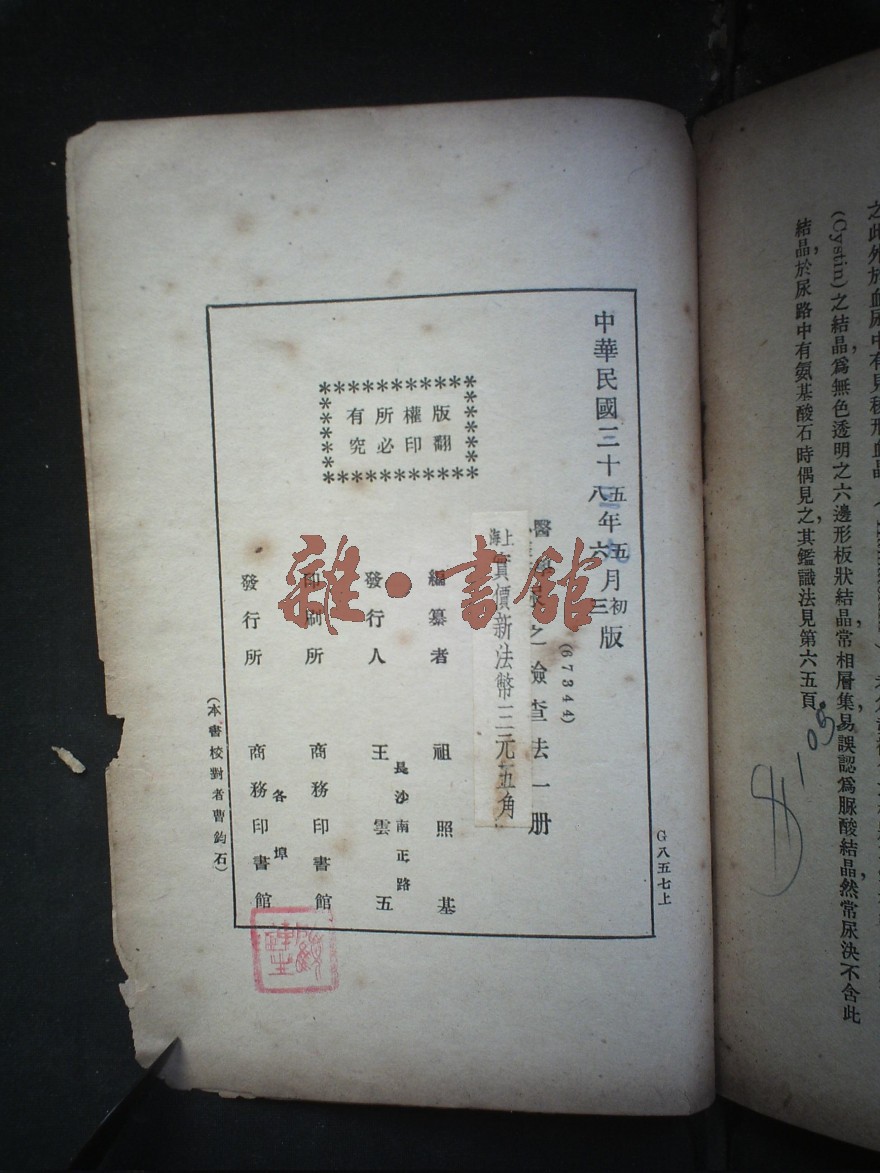 之此外於血尿中有見
(Cystin)之結晶,爲無色透明之六邊形板狀結晶常相層集易誤認爲脲酸結晶,然常尿決不含此
結晶,於尿路中有氨基酸石時偶見之,其鑑識法見第六五頁。
中華民國二十五年五月初版
八年六月三版
G八五七上
(67344)
醫 之檢查法一册
上海實價新法幣三元五角
版權所有
翻印必究
編纂者 祖照基
發行人 王雲五
長沙南正路
印刷所 商務印書館
各埠
發行所 商務印書館
(本書校對者曹鈞石)
雜·書館